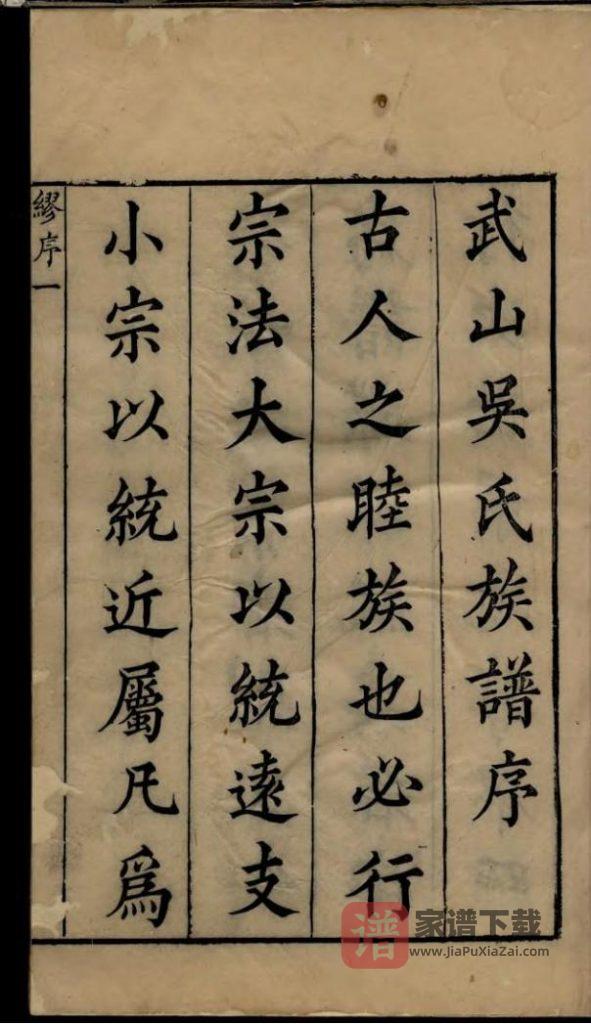 武山吳氏族譜序
古人之睦族也必行
宗法大宗以統遠支
小宗以統近屬凡為
繆序一
谱
家谱下载
www.JiaPuXiaZai.com